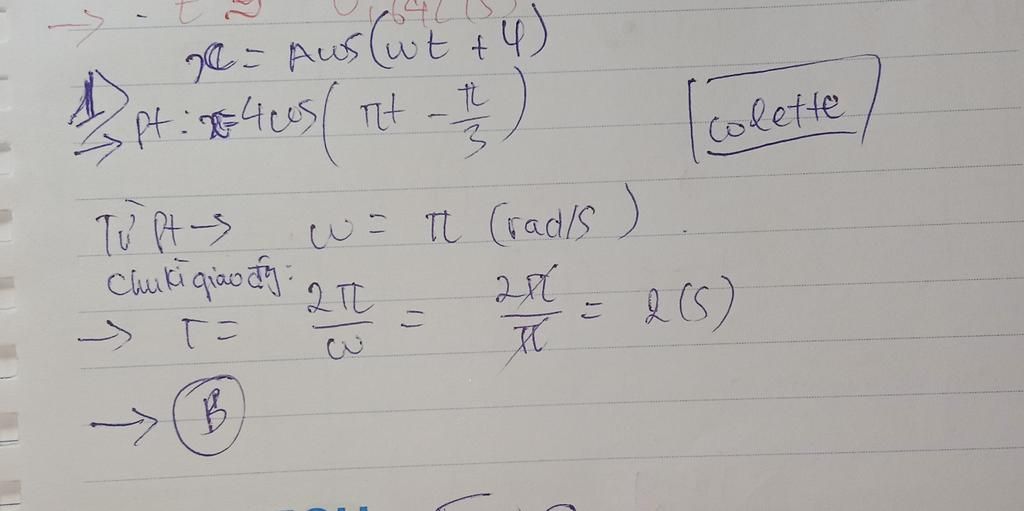 x = Acos(ωt + φ)
1)
→ Pt: x=4cos(πt - π/3)
colette
Từ Pt → ω = π (rad/s)
Chu kì giao độg:
→ T = 2π/ω = 2π/π = 2(s)
→ B